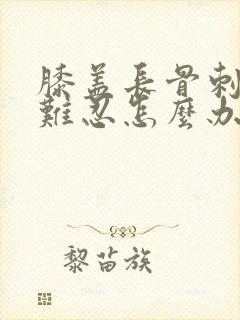 膝盖长骨刺
難忍怎麼办
黎苗族